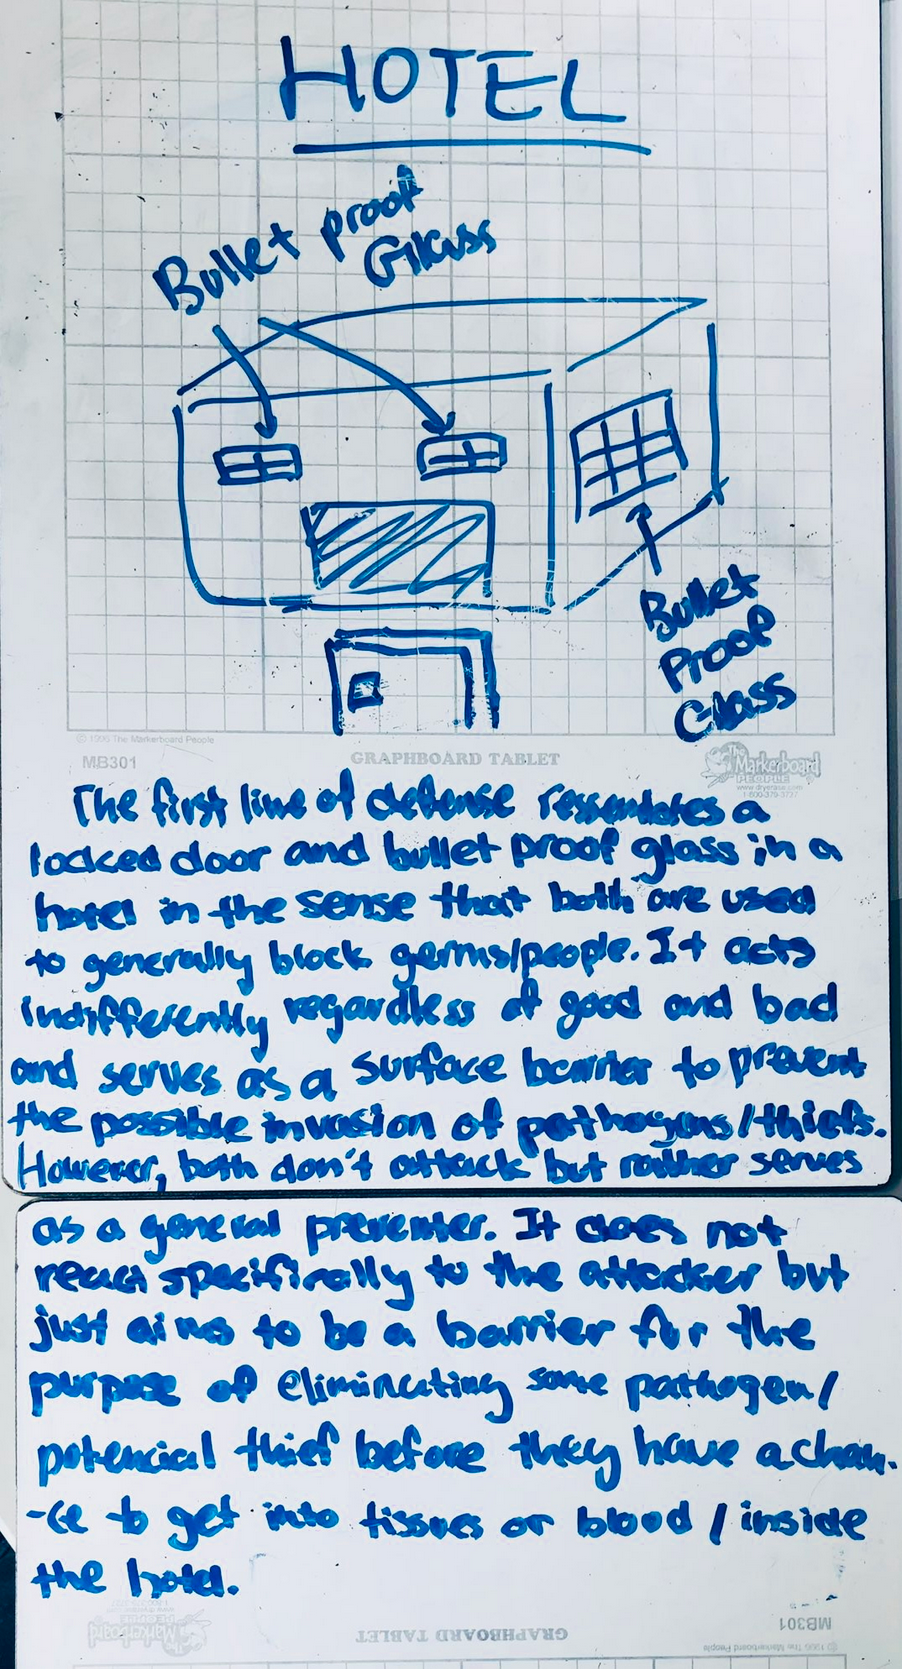 HOTEL
Bullet proof
Glass
Bullet
Proof
Glass
© 1996 The Markerboard People
MB301
GRAPHBOARD TABLET
The Markerboard
PEOPLE
www.dryerase.com
1-800-379-3727
The first line of defense ressembles a
locked door and bullet proof glass in a
hotel in the sense that both are used
to generally block germs/people. It acts
indifferently regardless of good and bad
and serves as a surface barrier to prevent
the possible invasion of pathogens/thiefs.
However, both don't attack but rather serves
as a general preventer. It does not
react specifically to the attacker but
just aims to be a barrier for the
purpose of eliminating some pathogen/
potencial thief before they have a chan-
-ce to get into tissues or blood / inside
the hotel.
MB301
GRAPHBOARD TABLET
© 1996 The Markerboard People